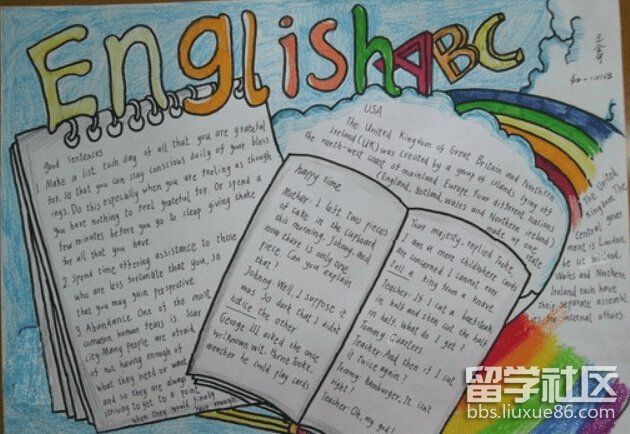 English ABC
good sentences
1 Make a list each day of all that you are grateful
for. So that you can stay conscious daily of your bless
ings. Do this especially when you are feeling as though
you have nothing to feel grateful for. Or spend a
few minutes before you go to sleep giving thanks
for all that you have
2 Spend time offering assistance to those
who are less fortunate that you, so
that you may gain perspective.
3 Abundance One of the most
common human fears is scar
city. Many people are afraid
of not having enough of
what they need or want
and so they are always
striving to get to a point
when they would finally
have enough
happy time
Mother: I left two pieces
of cake in the cupboard
this morning, Johnny, and
now there is only one
piece. Can you explain
that?
Johnny: Well, I suppose it
was so dark that I didn't
notice the other
George III asked the once
well known wit, Horne Tooke,
wheather he could play cards
Your majesty, replied Tooke,
I am a mere child where cards
are concerned I cannot even
Tell a king from a knave.
Teacher: If I cut a beefsteak
in half and then cut the half
in half. What do I get?
Tommy: Quarters
Teacher: And then if I cut
it twice again?
Tommy: Hamburger. It isn't
right!
Teacher: Oh, my god!
USA
The United Kingdom of Great Britain and Northern
Ireland (UK) was created by a group of islands lying off
the north-west coast of mainland Europe. Four different nations
(England, Scotland, Wales and Northern Ireland)
made up one
state
The United
Kingdom The
Central gover
ment is London,
Wales and Northern
Ireland each have
their separate assembl
ies for internal affairs.
留学社区
bbs.liuxue86.com